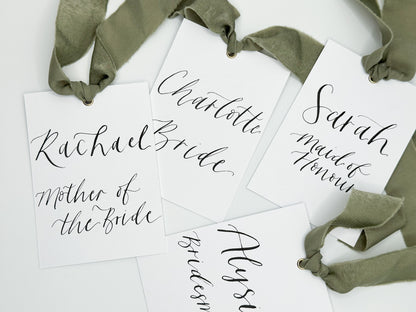 Rachael
Mother of
the Bride
Charlotte
Bride
Sarah
Maid of
Honour
Alys
Bridesm